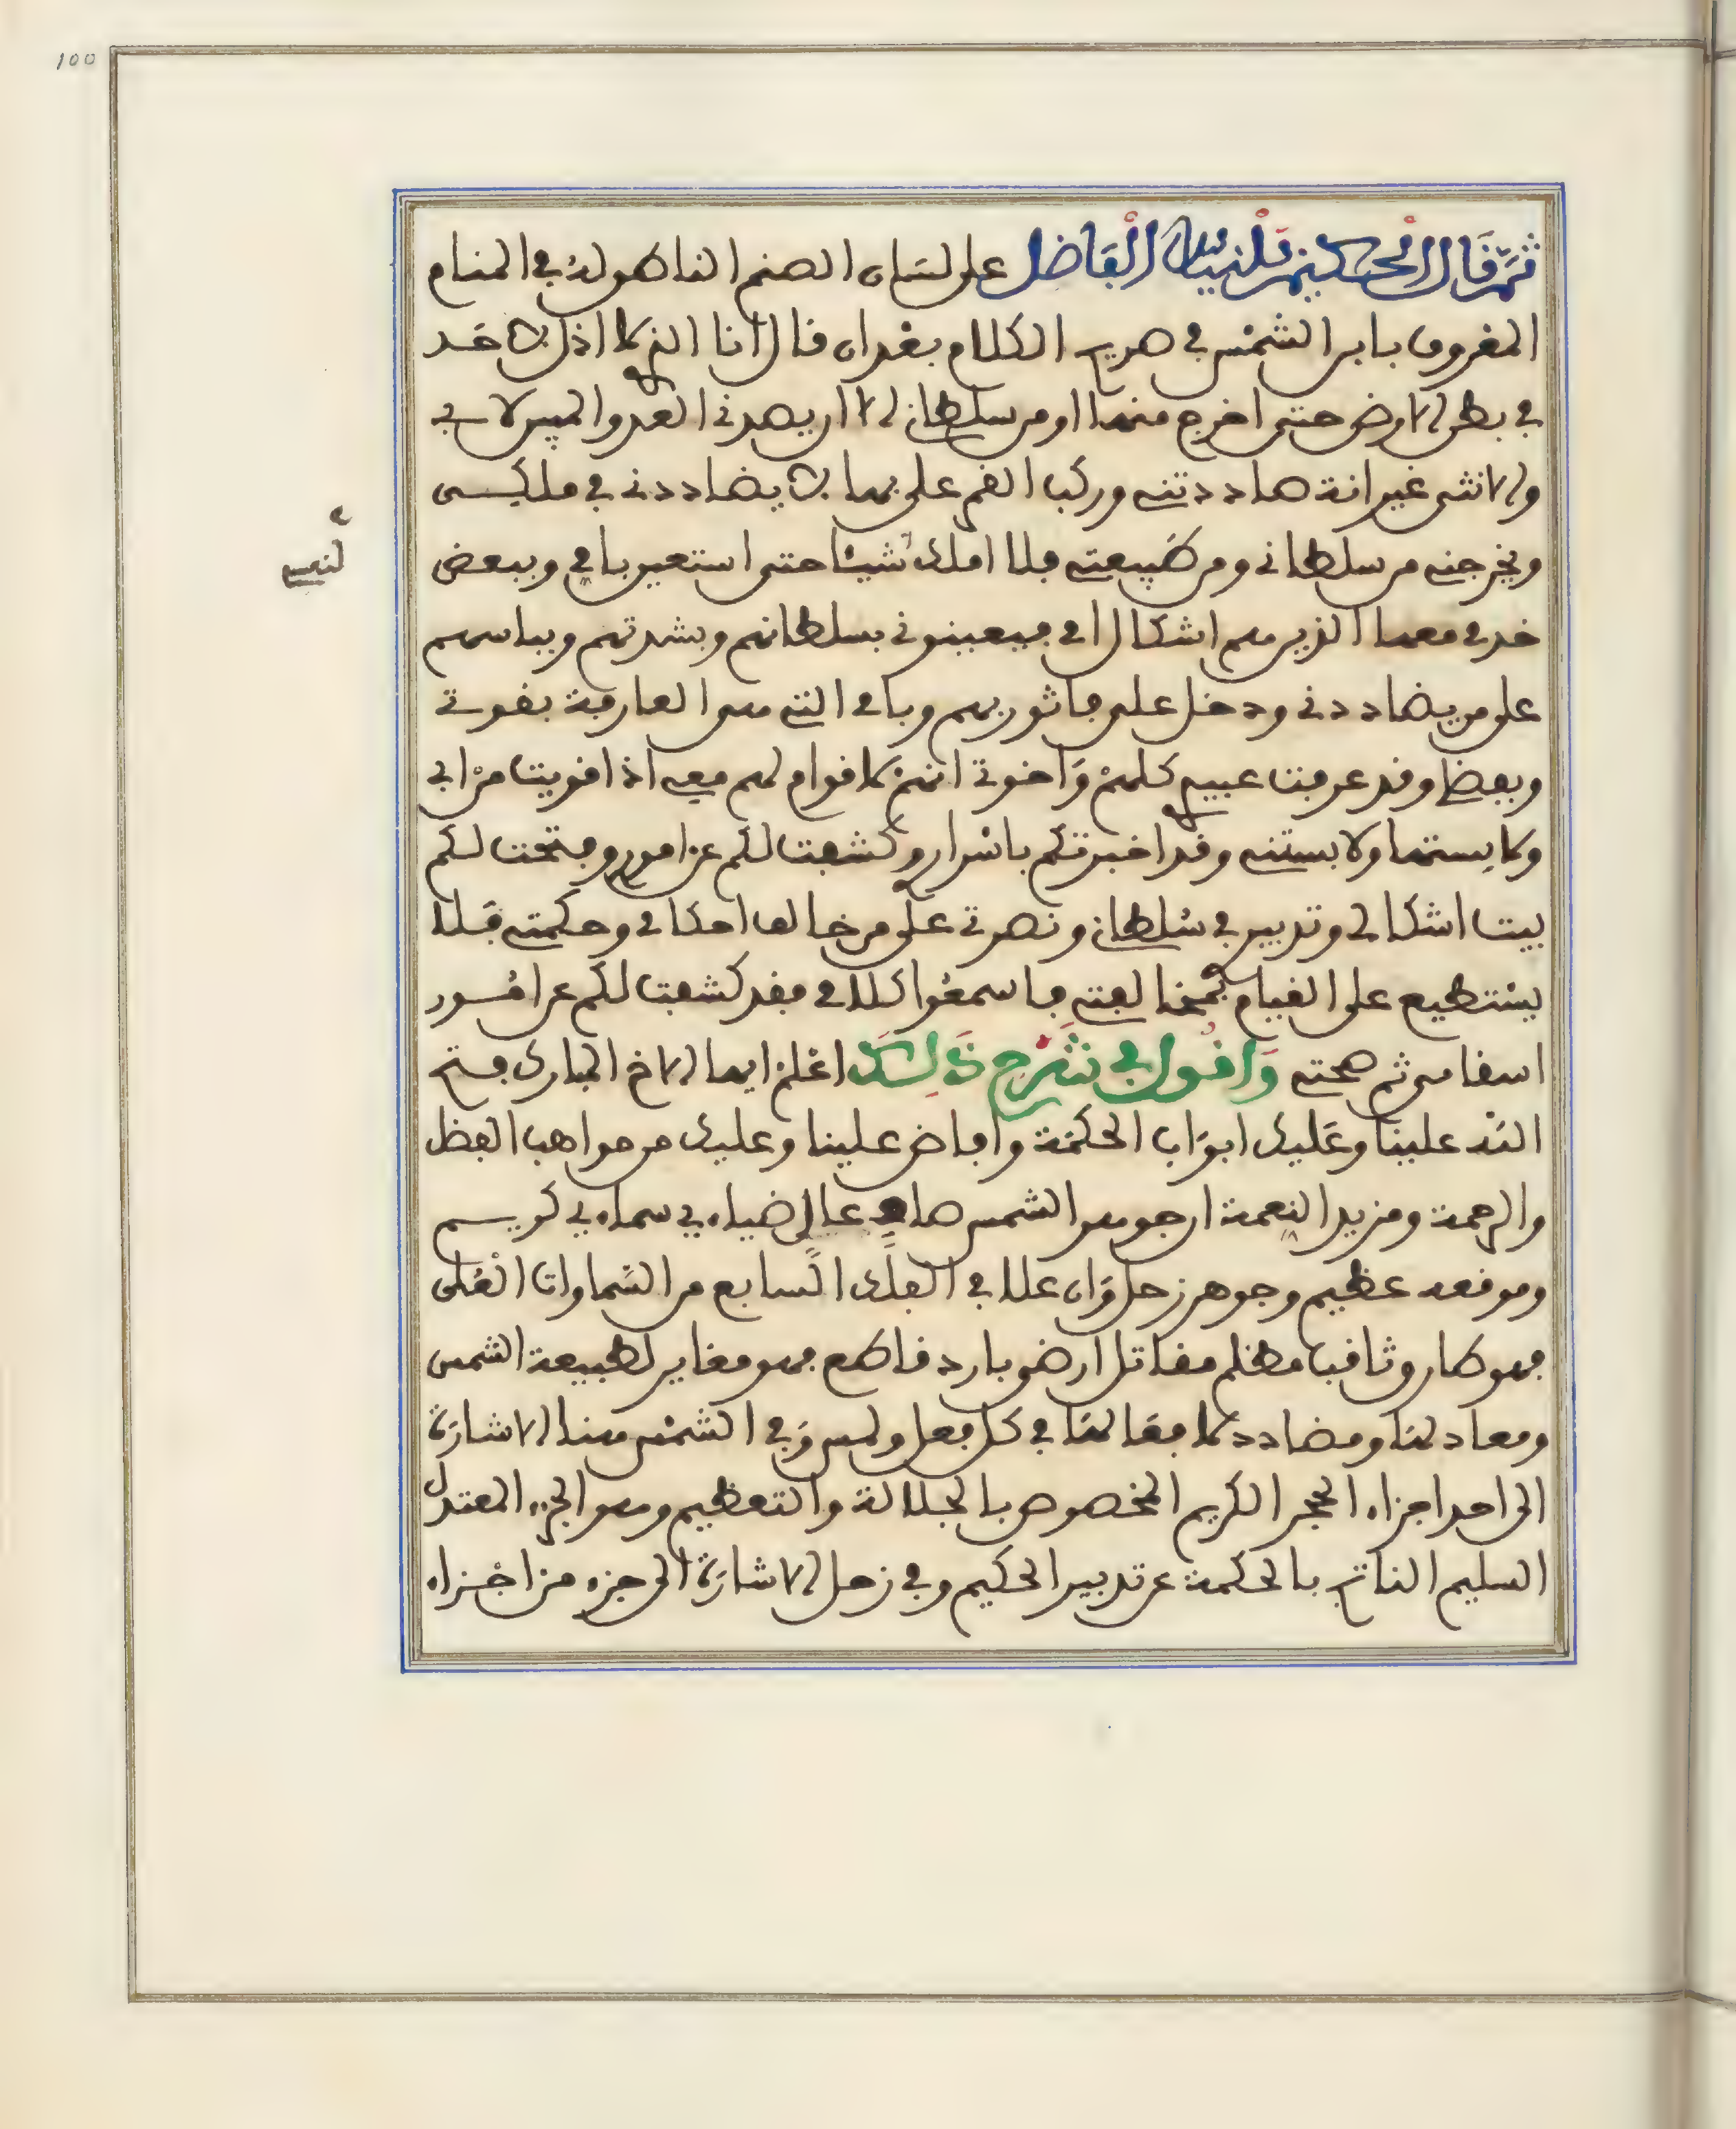 100
ثم قال الحكيم بلنياس الفاضل على لسان الصنم الناطق له في المنام
المعروف بابن الشمس في هذا الكلام بعد ان قال انا الذي لا اذل لاحد
في بطن الارض حتى اخرج منها او من سلطاني الا ان يصدني العدو لابي
والانثى غير انه ضاددتني وركب الغم علي بما لا يضاددني في ملكي
ويخرجني من سلطاني ومن طبيعتي فلا املك شيئا حتى استعين بامي وببعض
لنفسي
خدمي معها الذين هم اشكال امي فيعينوني بسلطانهم وبشدتهم وبباسهم
على من يضاددني ودخل علي فاثور بهم وبامي التي هي العارفة بقوتي
وبعضا وقد عرفت عبيدي كلهم واخوتي انهم لا قوام لهم معي اذا قويت من ابي
ولابستها ولابستني وقد اخبرتكم باسرار وكشفت لكم عن امور وفتحت لكم
بيت اشكالي وتدبير في سلطاني ونصرتي على من خالف احكامي وحكمتي فلا
يستطيع على القيام بمخالفتي فاسمعوا كلامي فقد كشفت لكم عن امور
اسقامي ثم صحتي واقول في شرح ذلك اعلم ايها الاخ المبارك فتح
الله علينا وعليك ابواب الحكمة وافاض علينا وعليك من مواهب الفضل
والرحمة ومزيد النعمة ان جوهر الشمس صاف عال ضياءي سماءي كريم
وموقعه عظيم وجوهر زحل وان علا في الفلك السابع من السماوات العلى
فهو كما روثا فيا مظلم مقاتل ارضي بارد قاطع فهو مغاير لطبيعة الشمس
ومعاد لها ومضادد لافعالها في كل فعل ولمس وفي الشمس هنا الاشارة
الى احد اجزاء الحجر الكريم المخصوص بالجلالة والتعظيم وهو الجزء المعتدل
السليم الناتج بالحكمة عن تدبير الحكيم وفي زحل الاشارة الى جزء من اجزاء